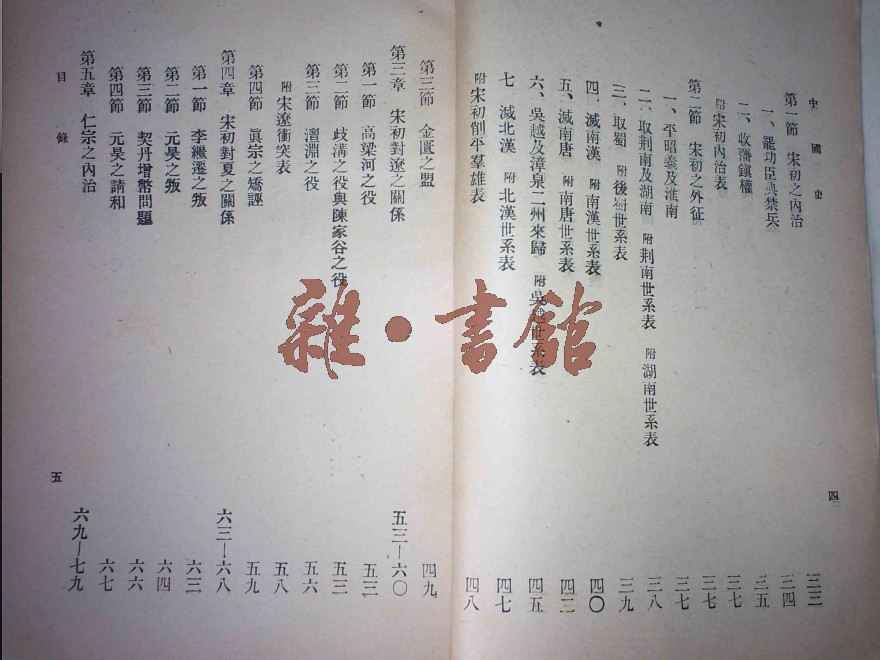 中國史
四
第一節 宋初之內治 三三
一、罷功臣典禁兵 三四
二、收藩鎮權 三五
附宋初內治表 三七
第二節 宋初之外征 三七
一、平昭義及淮南 三七
二、取荆南及湖南 附荆南世系表 附湖南世系表 三八
三、取蜀 附後蜀世系表 三九
四、滅南漢 附南漢世系表 四〇
五、滅南唐 附南唐世系表 四二
六、吳越及漳泉二州來歸 附吳越世系表 四五
七、滅北漢 附北漢世系表 四七
附宋初削平羣雄表 四八
第三節 金匱之盟 四九
第三章 宋初對遼之關係 五三—六〇
第一節 高梁河之役 五三
第二節 歧溝之役與陳家谷之役 五三
第三節 澶淵之役 五六
附宋遼衝突表 五八
第四節 眞宗之矯誣 五九
第四章 宋初對夏之關係 六三—六八
第一節 李繼遷之叛 六三
第二節 元昊之叛 六四
第三節 契丹增幣問題 六六
第四節 元昊之請和 六七
第五章 仁宗之內治 六九—七九
目錄
五
雜·書館